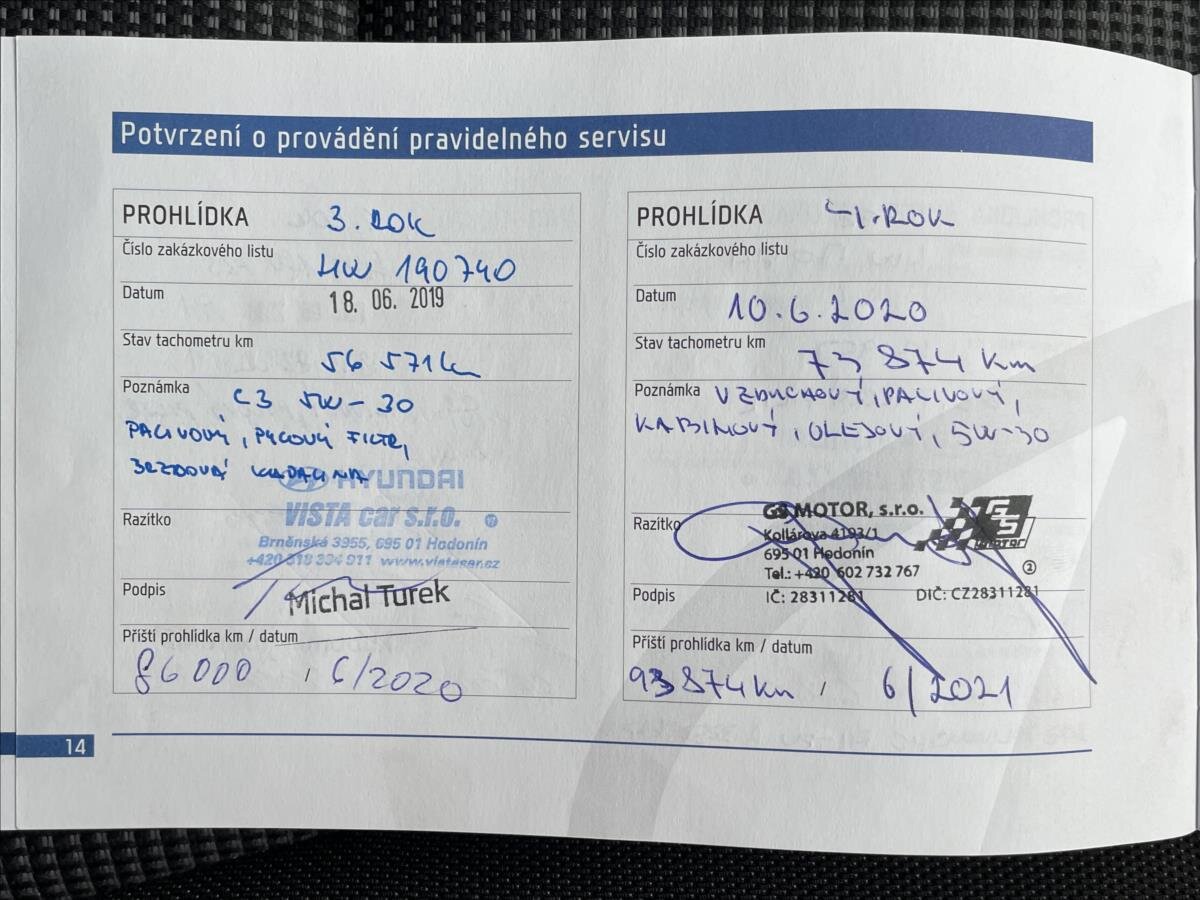 Potvrzení o provádění pravidelného servisu
PROHLÍDKA 3. ROK
Číslo zakázkového listu
HW 190740
Datum 18. 06. 2019
Stav tachometru km
56 571 km
Poznámka , C3 5W-30
PALIVOVÝ, PYLOVÝ FILTR,
BRZDOVÁ KAPALINA
HYUNDAI
Razítko VISTA car s.r.o.
Brněnská 3955, 695 01 Hodonín
www.vistacar.cz
Podpis Michal Turek
Příští prohlídka km / datum
86 000 / 6/2020
PROHLÍDKA 4. ROK
Číslo zakázkového listu
Datum 10.6.2020
Stav tachometru km
73 874 km
Poznámka VZDUCHOVÝ, PALIVOVÝ,
KABINOVÝ, OLEJOVÝ, 5W-30
GS MOTOR, s.r.o.
Razítko Kollárova 4193/1
695 01 Hodonín
Tel.: +420 602 732 767
IČ: 28311281 DIČ: CZ28311281
GS
MOTOR
2
Podpis
Příští prohlídka km / datum
93 874 km / 6/2021
14